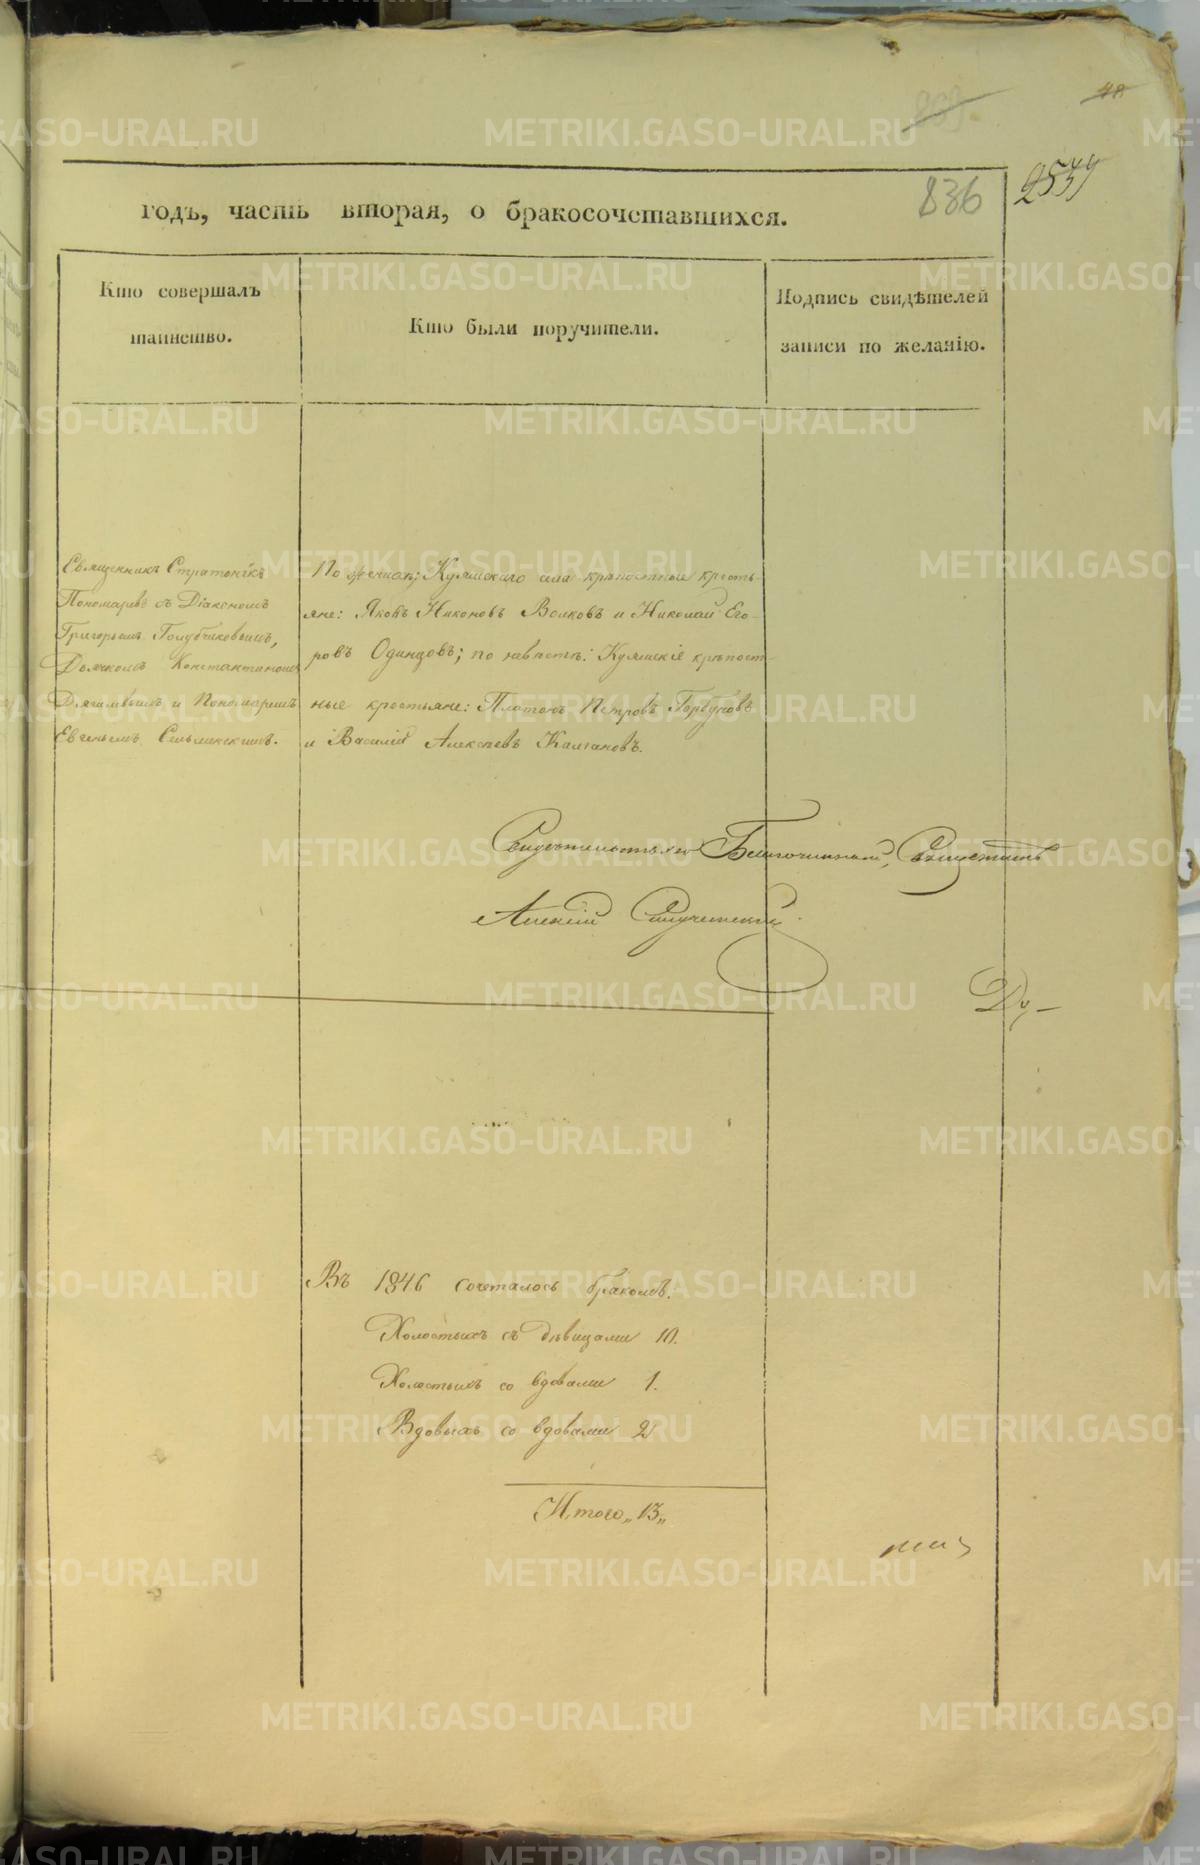 48
869
2539
836
годъ, часть вторая, о бракосочетавшихся.
Кто совершалъ
таинство.
Кто были поручители.
Подпись свидѣтелей
записи по желанію.
Священникъ Стратоникъ
Пономаревъ съ Діакономъ
Григорьемъ Голубчиковымъ,
Дьячкомъ Константиномъ
и Пономаремъ
Евгеньемъ
По женихѣ: Куяшскаго села крѣпостные кресть-
яне: Яковъ Никоновъ Волковъ и Николай Его-
ровъ Одинцовъ; по невѣстѣ: Куяшскіе крѣпост-
ные крестьяне: Платонъ Петровъ Горбуновъ
и Василій Алексѣевъ Калгановъ.
Свидѣтельствовалъ Благочинный, Священникъ
Алексій
Ду-
Въ 1846 сочеталось бракомъ.
Холостыхъ съ дѣвицами 10.
Холостыхъ со вдовами 1.
Вдовыхъ со вдовами 2
Итого „13„
METRIKI.GASO-URAL.RU